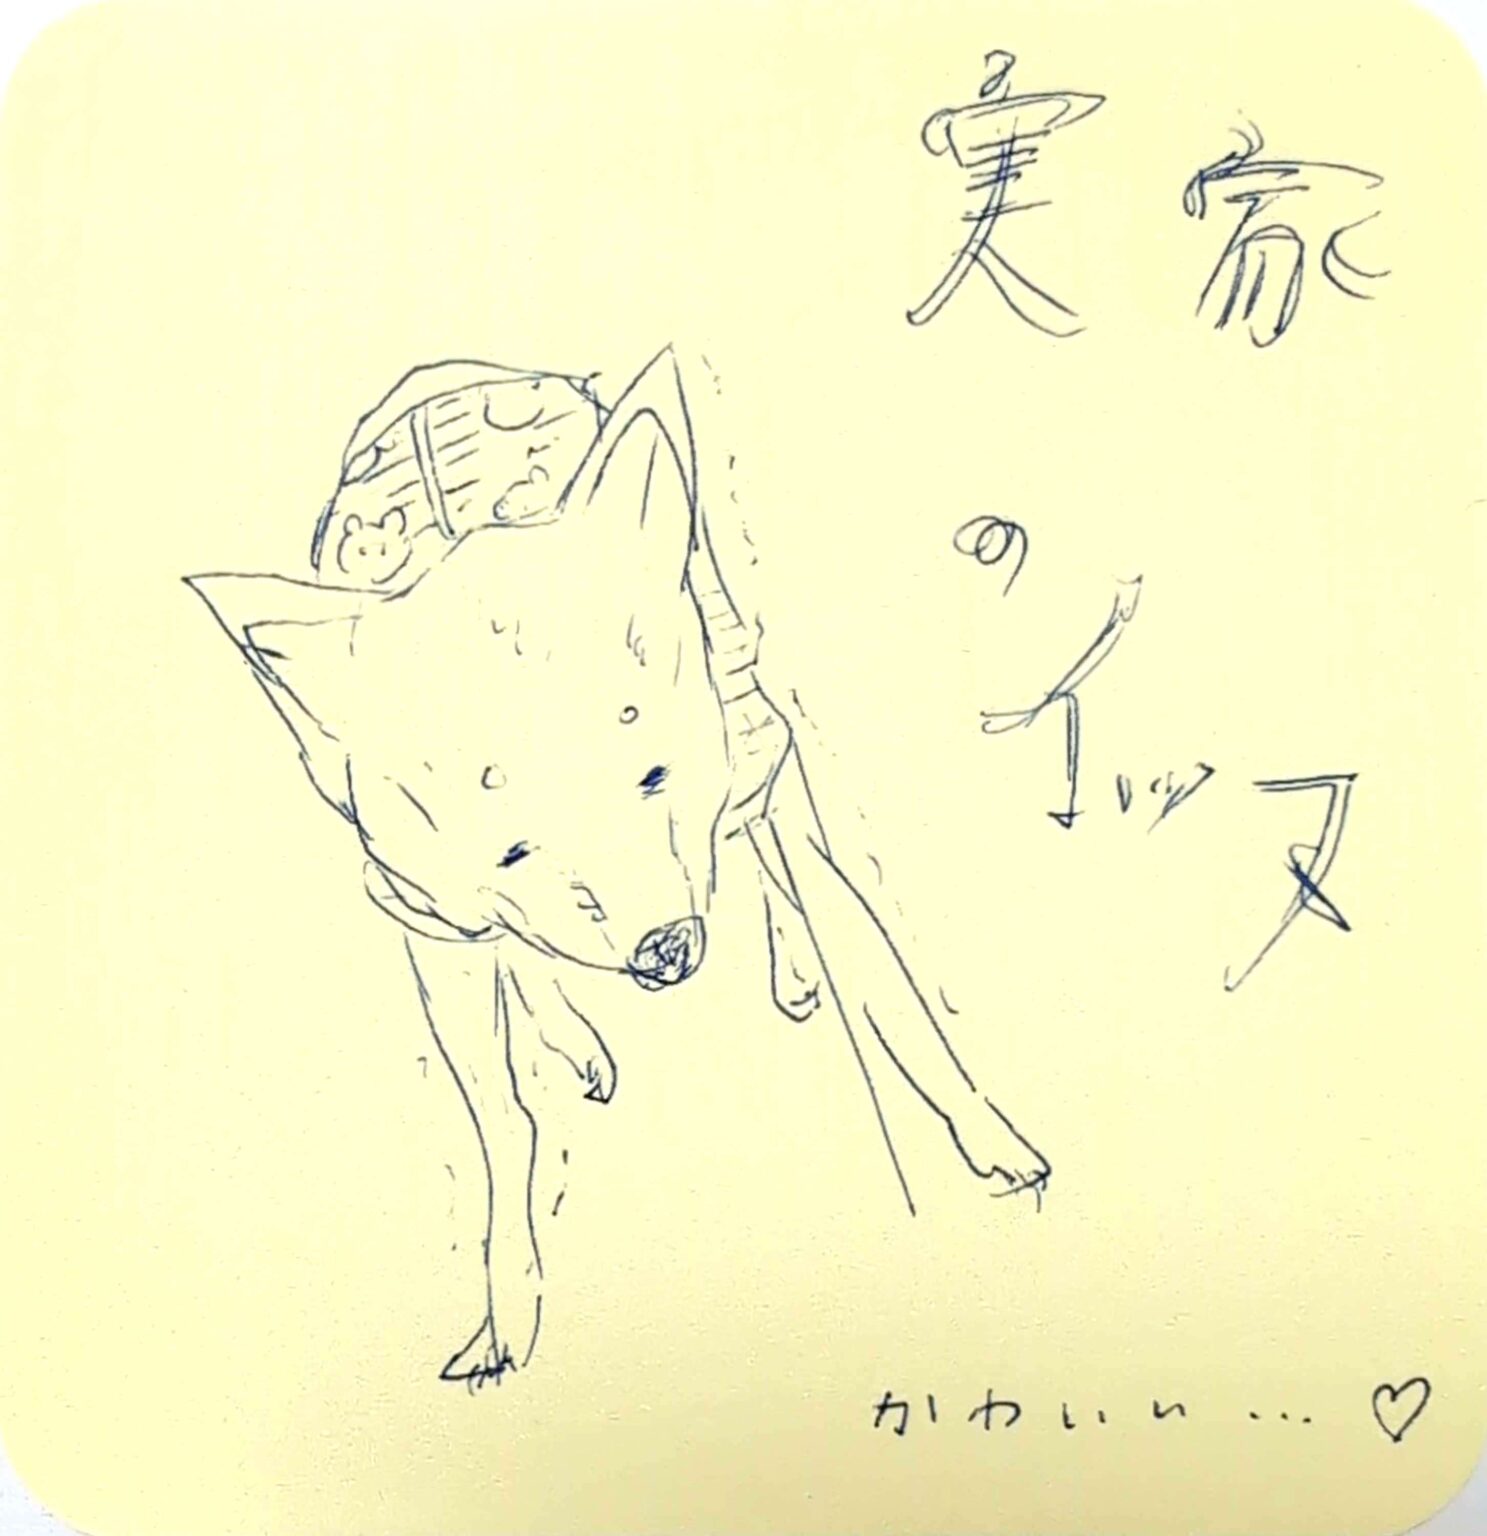 実家
の
イッヌ
かわいい…♡